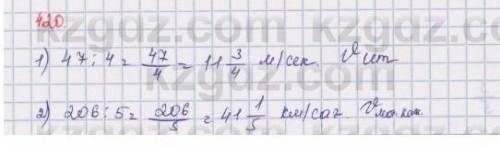 420
1) 47 : 4 = 47/4 = 11 3/4 м/сек. Vит
2) 206 : 5 = 206/5 = 41 1/5 км/саг.
kzgdz.com